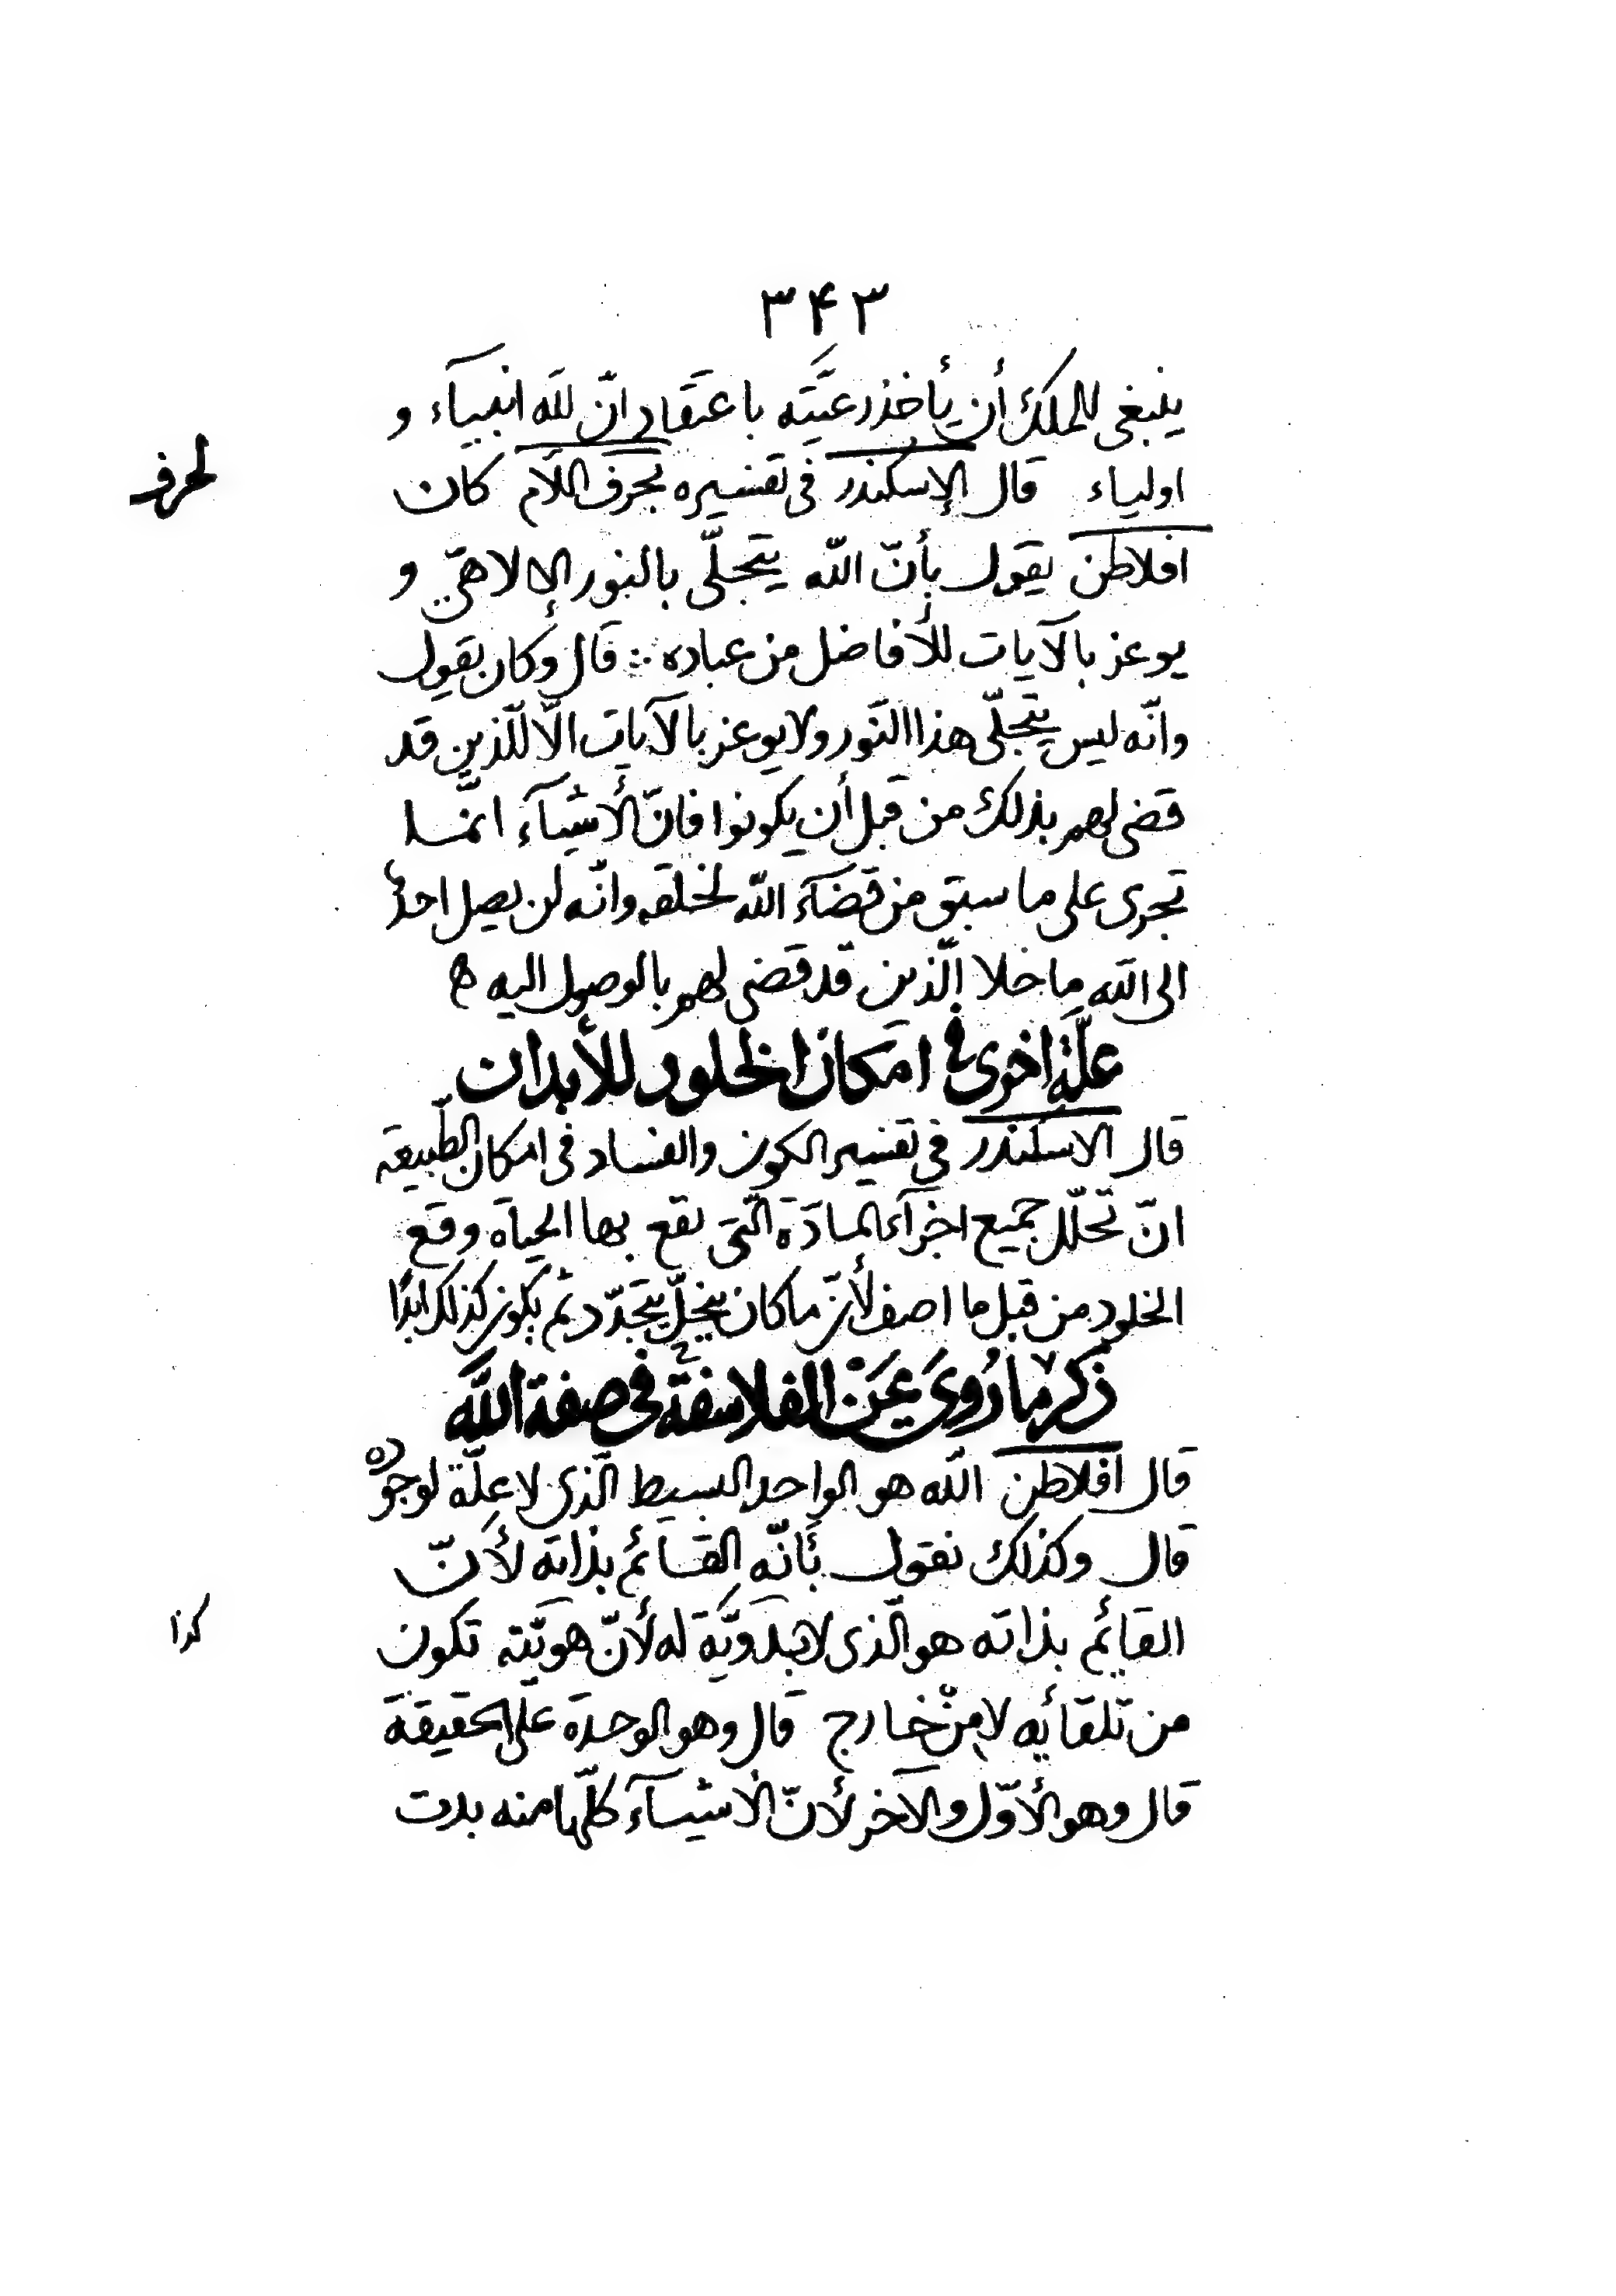 ۳۴۳
ينبغى للملك أن يأخذ رعيّته باعتقاد انّ لله انبيآء و
اولياء قال الإسكندر فى تفسيره بحرف اللّام كان
لحرف
افلاطن يقول بأنّ اللّه يتجلّى بالنور الالاهىّ و
يوعز بالآيات للأفاضل من عباده ∴ قال وكان يقول
وانّه ليس يتجلّى هذا النّور ولا يوعز بالآيات الّا للّذين قد
قضى لهم بذلك من قبل أن يكونوا فانّ الأشيآء انّما
تجرى على ما سبق من قضآء اللّه لخلقه وانّه لن يصل احدٌ
الى اللّه ما خلا الّذين قد قضى لهم بالوصول اليه
علّة اخرى فى امكان الخلود للأبدان
قال الاسكندر فى تفسير الكون والفساد فى امكان الطّبيعة
انّ تحلّل جميع اجزآء المادّة الّتى تقع بها الحياة وقع
الخلود من قبل ما اصف لأنّ ما كان ينحلّ يتجدّد ثم يكون كذلك ابدًا
ذكر ما رُوِىَ عَنْ الفلاسفة فى صفة اللّه
قال افلاطن اللّه هو الواحد البسيط الّذى لا علّة لوجوده
قال وكذلك نقول بأنّه القائم بذاته لأنّ
القايم بذاته هو الّذى لا بدويّة له لأنّ هويّته تكون
كذا
من تلقايه لا من خارج قال وهو الوحدة على الحقيقة
قال وهو الأوّل والآخر لأنّ الأشيآء كلّها منه بدت